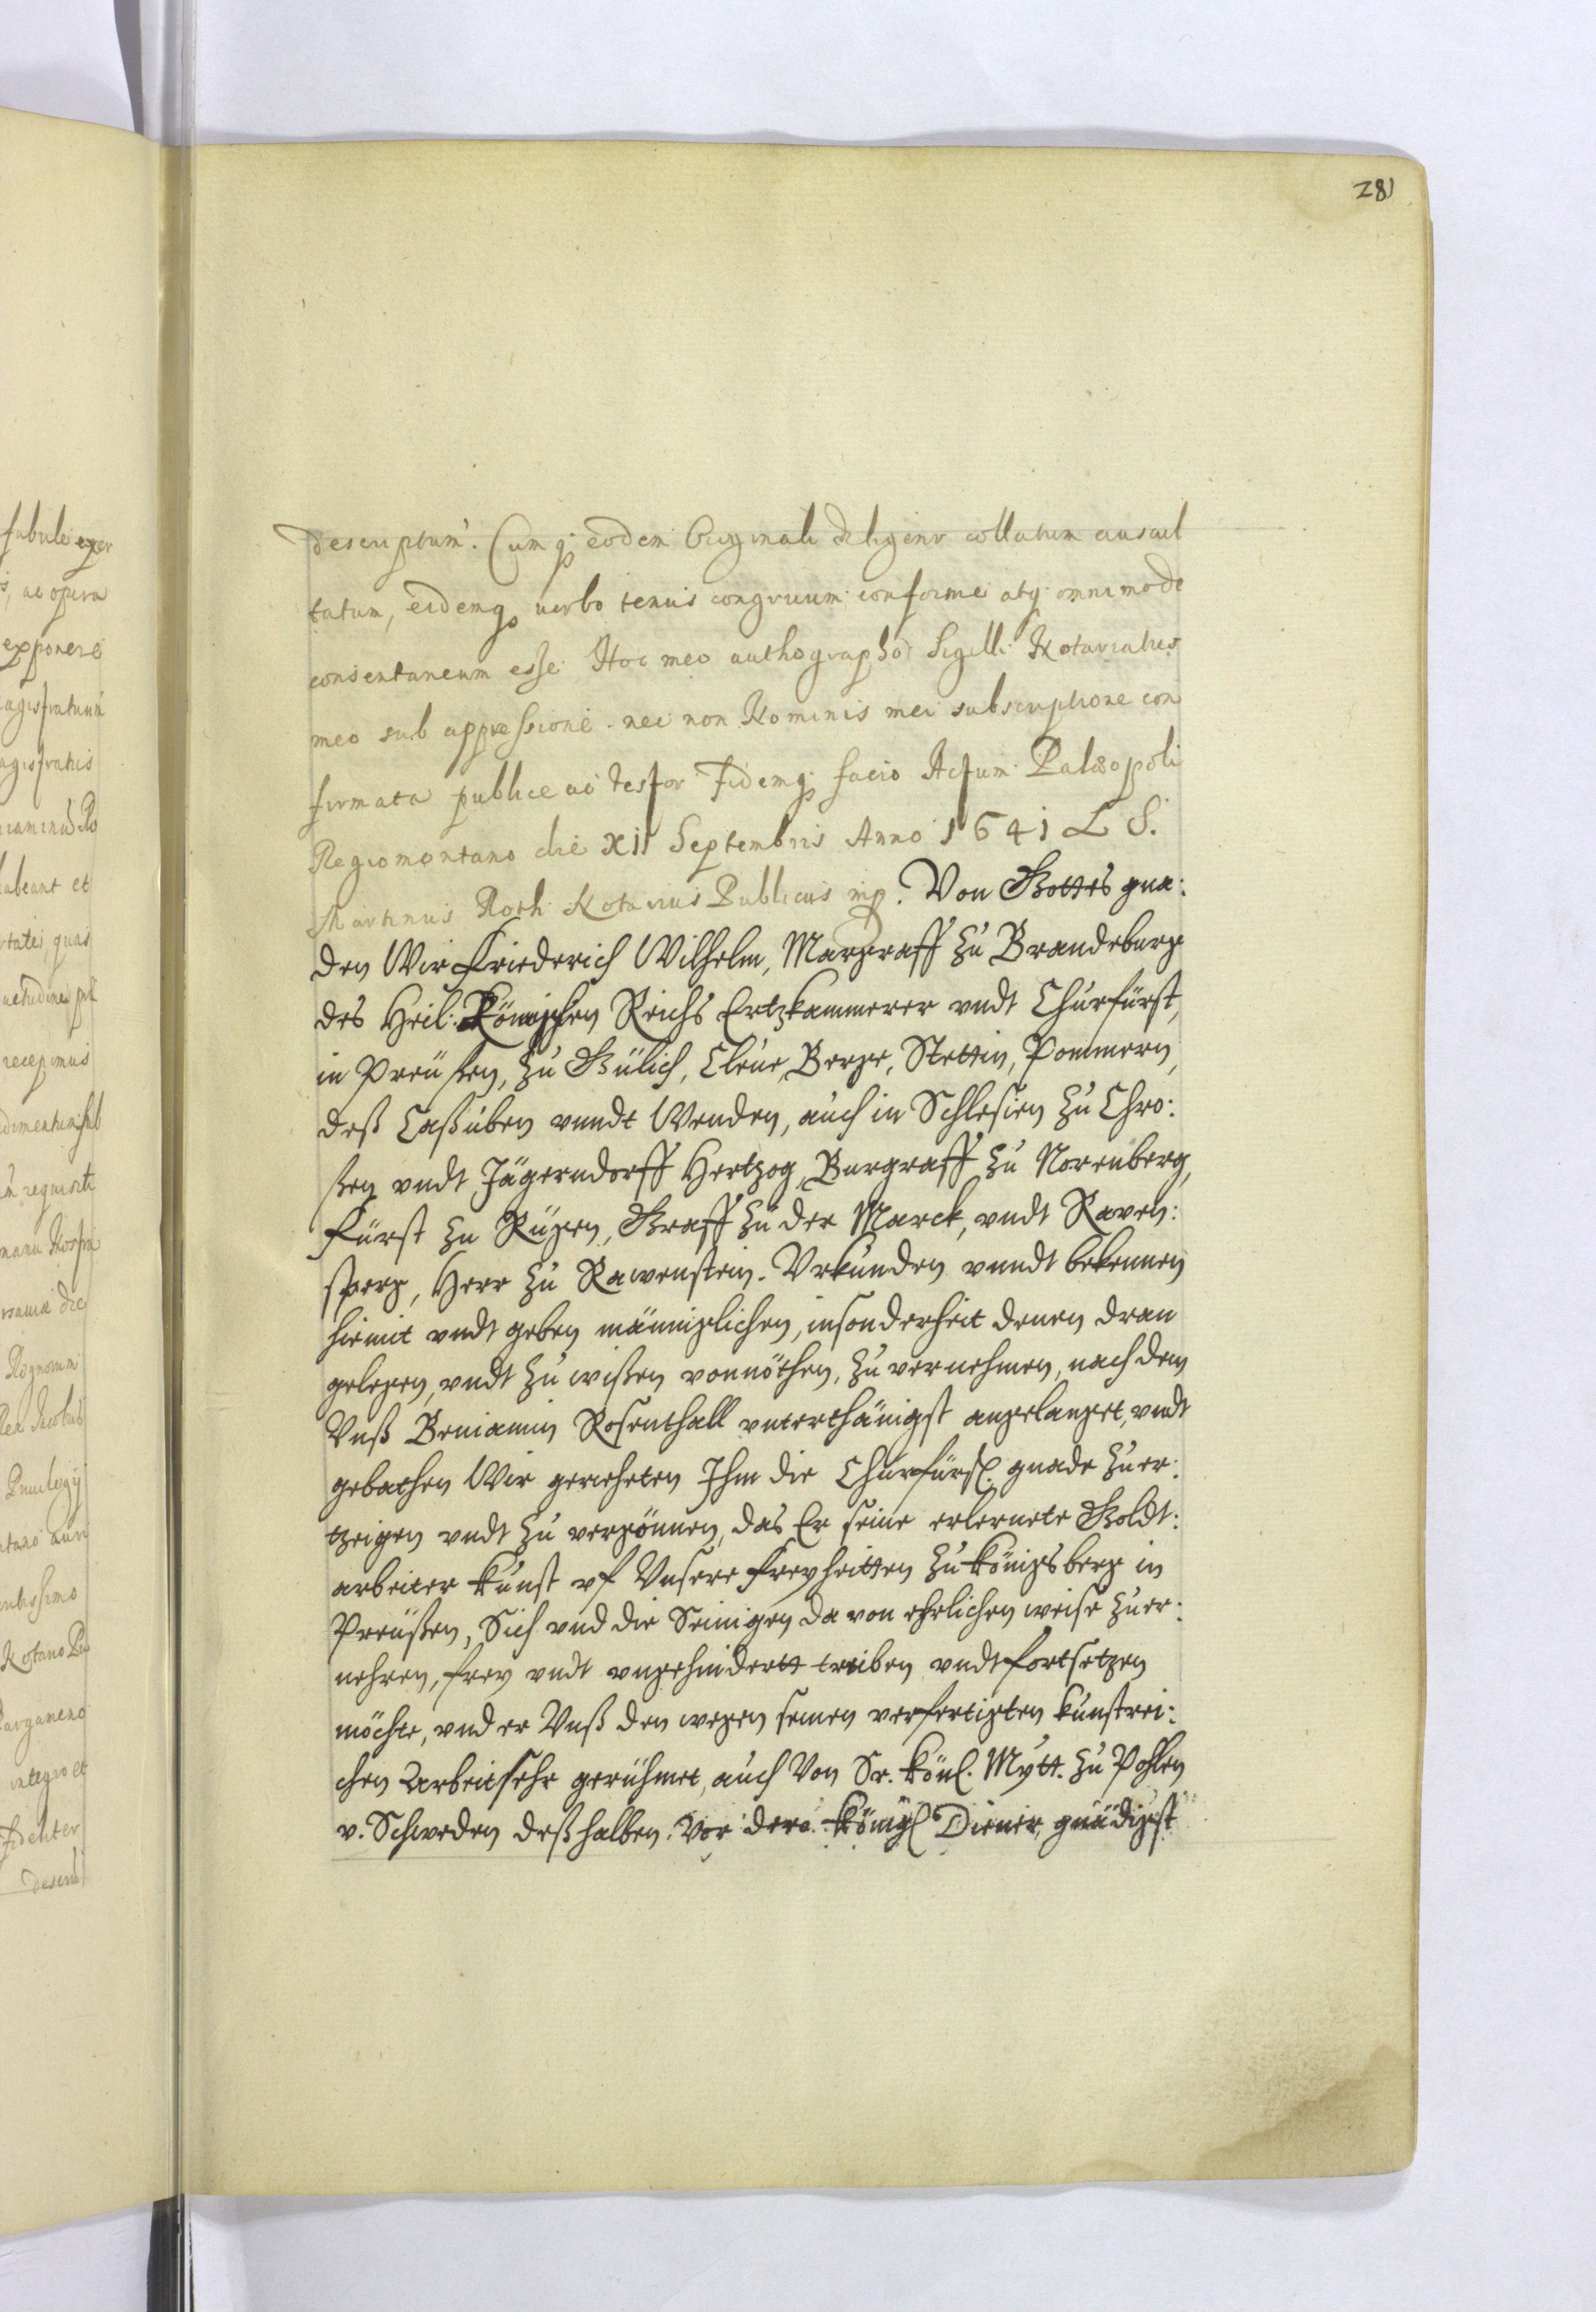 281
descriptum. Cumq; eodem Originali diligenter collatum auscul
tatum, eidemq; verbo tenus congruum conforme atq; omnimode
consentaneum esse. Hoc meo authographo Sigilli Notariatus
meo sub appressione nec non Nominis mei subscriptione con
firmata publice ac testor Fidemq; facio Actum Palæopoli
Regiomontano die XII Septembris Anno 1641 L S.
Martinus Roth Notarius Publicus mp. Von Gottes gna:
den Wir Friederich Wilhelm, Margraff zu Brandeburg
des Heil: Römischen Reichs Ertzkammerer undt Churfürst,
in Preüßen, zu Gülich, Cleue, Berge, Stettin, Pommern,
deß Caßuben vnndt Wenden, auch in Schlesien zu Chro:
ßen vndt Jägerndorff Hertzog, Burgraff zu Norenberg,
Fürst zu Rügen, Graff zu der Marck, vndt Raven:
sperg, Herr zu Rawenstein. Vrkunden vnndt bekennen
hiemit vndt geben männiglichen, insonderheit denen dran
gelegen, vndt zu wißen vonnöthen, zu vernehmen, nach dem
Vnß Beniamin Rosenthall vnterthänigst angelanget, vndt
gebathen Wir geruheten Ihm die Churfürstl. gnade zu er:
tzeigen vndt zu vergönnen, das Er seine erlernete Goldt:
arbeiter Kunst vf Vnsere freyheitten zu Königsberg in
Preüßen, Sich vnd die Seinigen da von ehrlichen weise zu er:
nehren, frey vndt vngehindertt treiben vndt fortsetzen
möchte, vnd er Vnß den wegen seinen verfertigten kunstrei:
chen Arbeit sehr gerühmet, auch Von Sr. Könl. Mytt. zu Pohlen
v. Schweden deßhalben. Vor dero Königl Diener gnädigst